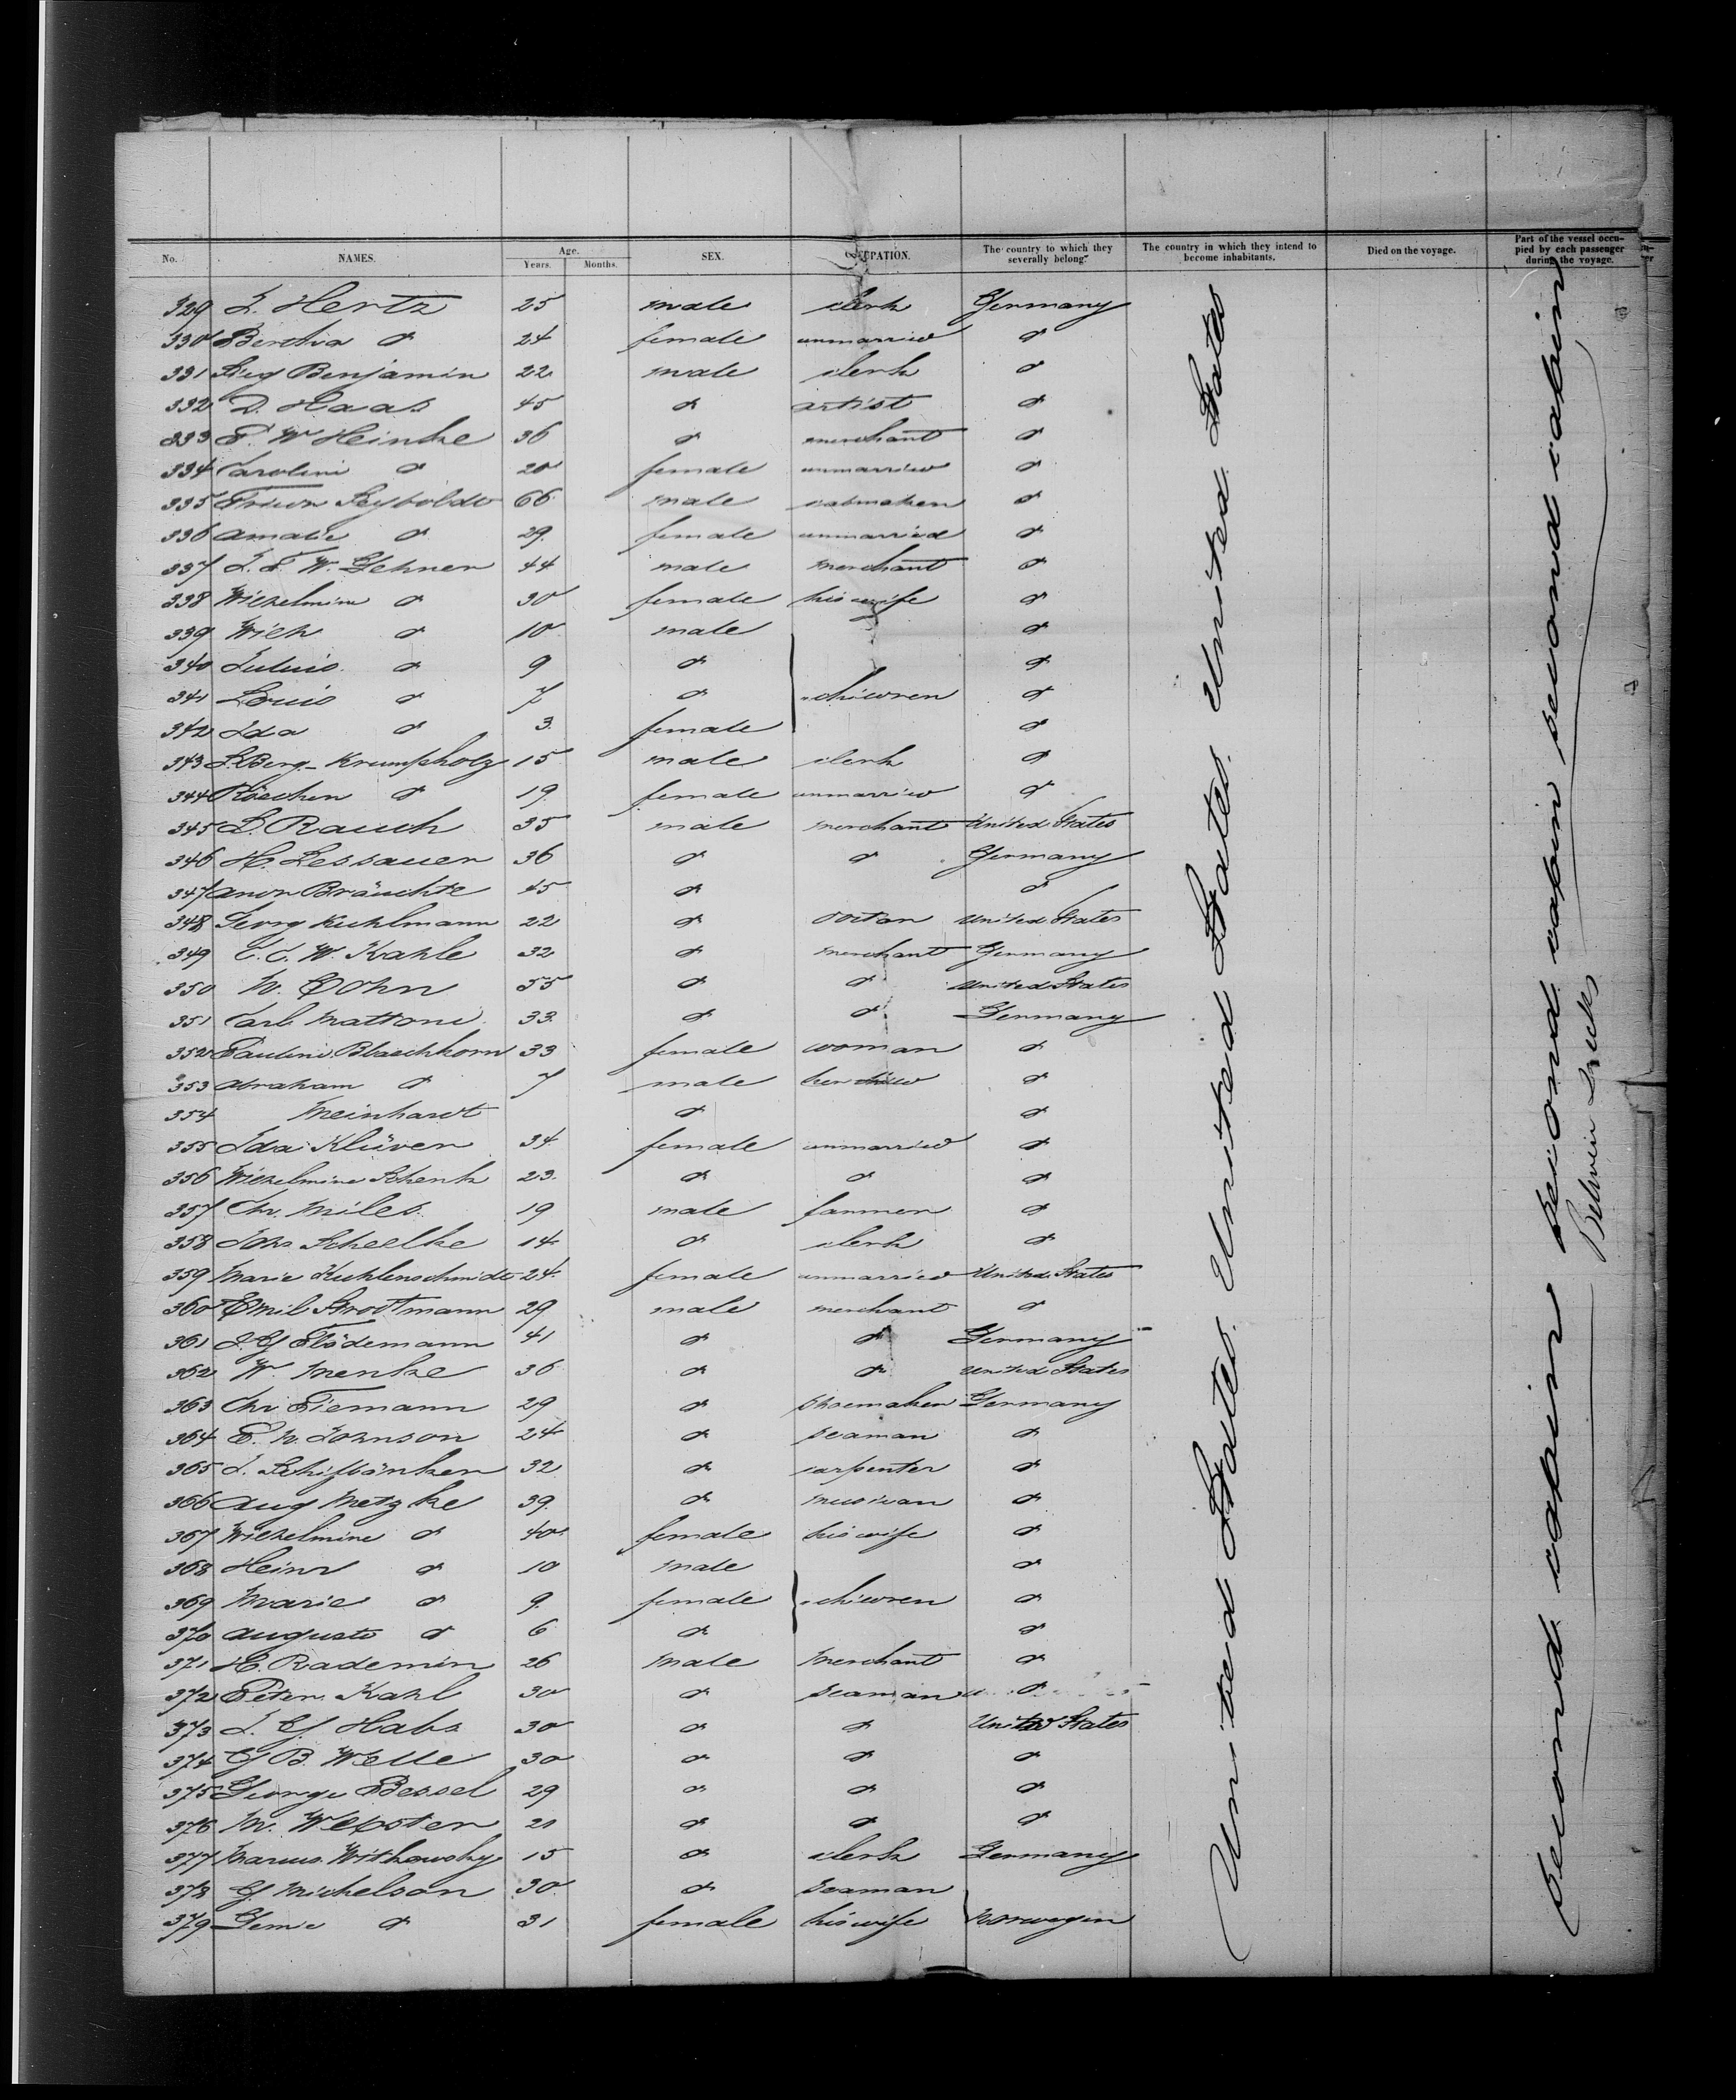 No. NAMES. Age. Years. Months. SEX. OCCUPATION. The country to which they severally belong. The country in which they intend to become inhabitants. Died on the voyage. Part of the vessel occupied by each passenger during the voyage.
329 Hertz 25 male clerk Germany
330 Bertha do 24 female unmarried do
331 Benjamin 22 male clerk do
332 D. Haas 45 do artist do
333 F. W Heinke 36 do merchant do
334 Caroline do 20 female unmarried do
335 Seyboldt 66 male do
336 Amalie do 29 female unmarried do
337 W. 44 male merchant do
338 Wilhelmine do 30 female his wife do
339 Wilh do 10 male do
340 do 9 do do
341 Louis do 7 do children do
342 Ida do 3 female do
343 Krumpholz 15 male clerk do
344 Röschen do 19 female unmarried do
345 Rauch 35 male merchant United States
346 H. Lessauer 36 do do Germany
347 Bräuchte 45 do do
348 Georg Kuhlmann 22 do doctor United States
349 C. C. W. Kahle 32 do merchant Germany
350 Cohn 55 do do United States
351 Carl Mattoni 33 do do Germany
352 Pauline Blaechkorn 33 female woman do
353 Abraham do 7 male her child do
354 Meinhardt do do
355 Ida Klüver 34 female unmarried do
356 Wilhelmine Schenk 23 do do do
357 Chr. Miles 19 male farmer do
358 Joh. Scheelke 14 do clerk do
359 Marie Kuhlenschmidt 24 female unmarried United States
360 Emil Strodtmann 29 male merchant do
361 Flödemann 41 do do Germany
362 W. Menke 36 do do United States
363 Chr Tiemann 29 do shoemaker Germany
364 Johnson 24 do seaman do
365 32 do carpenter do
366 Aug Metzke 39 do musician do
367 Wilhelmine do 40 female his wife do
368 Heinr do 10 male do
369 Marie do 9 female children do
370 Auguste do 6 do do
371 H. Rademin 26 male merchant do
372 Peter Kahl 30 do seaman do
373 30 do do United States
374 G B. Welle 30 do do do
375 George Bessel 29 do do do
376 M. Webster 21 do do do
377 Marcus Witkowsky 15 do clerk Germany
378 G. Michelson 30 do seaman
379 do 31 female his wife Norwegen
United States United States United States
second cabin second cabin second cabin
Between Decks